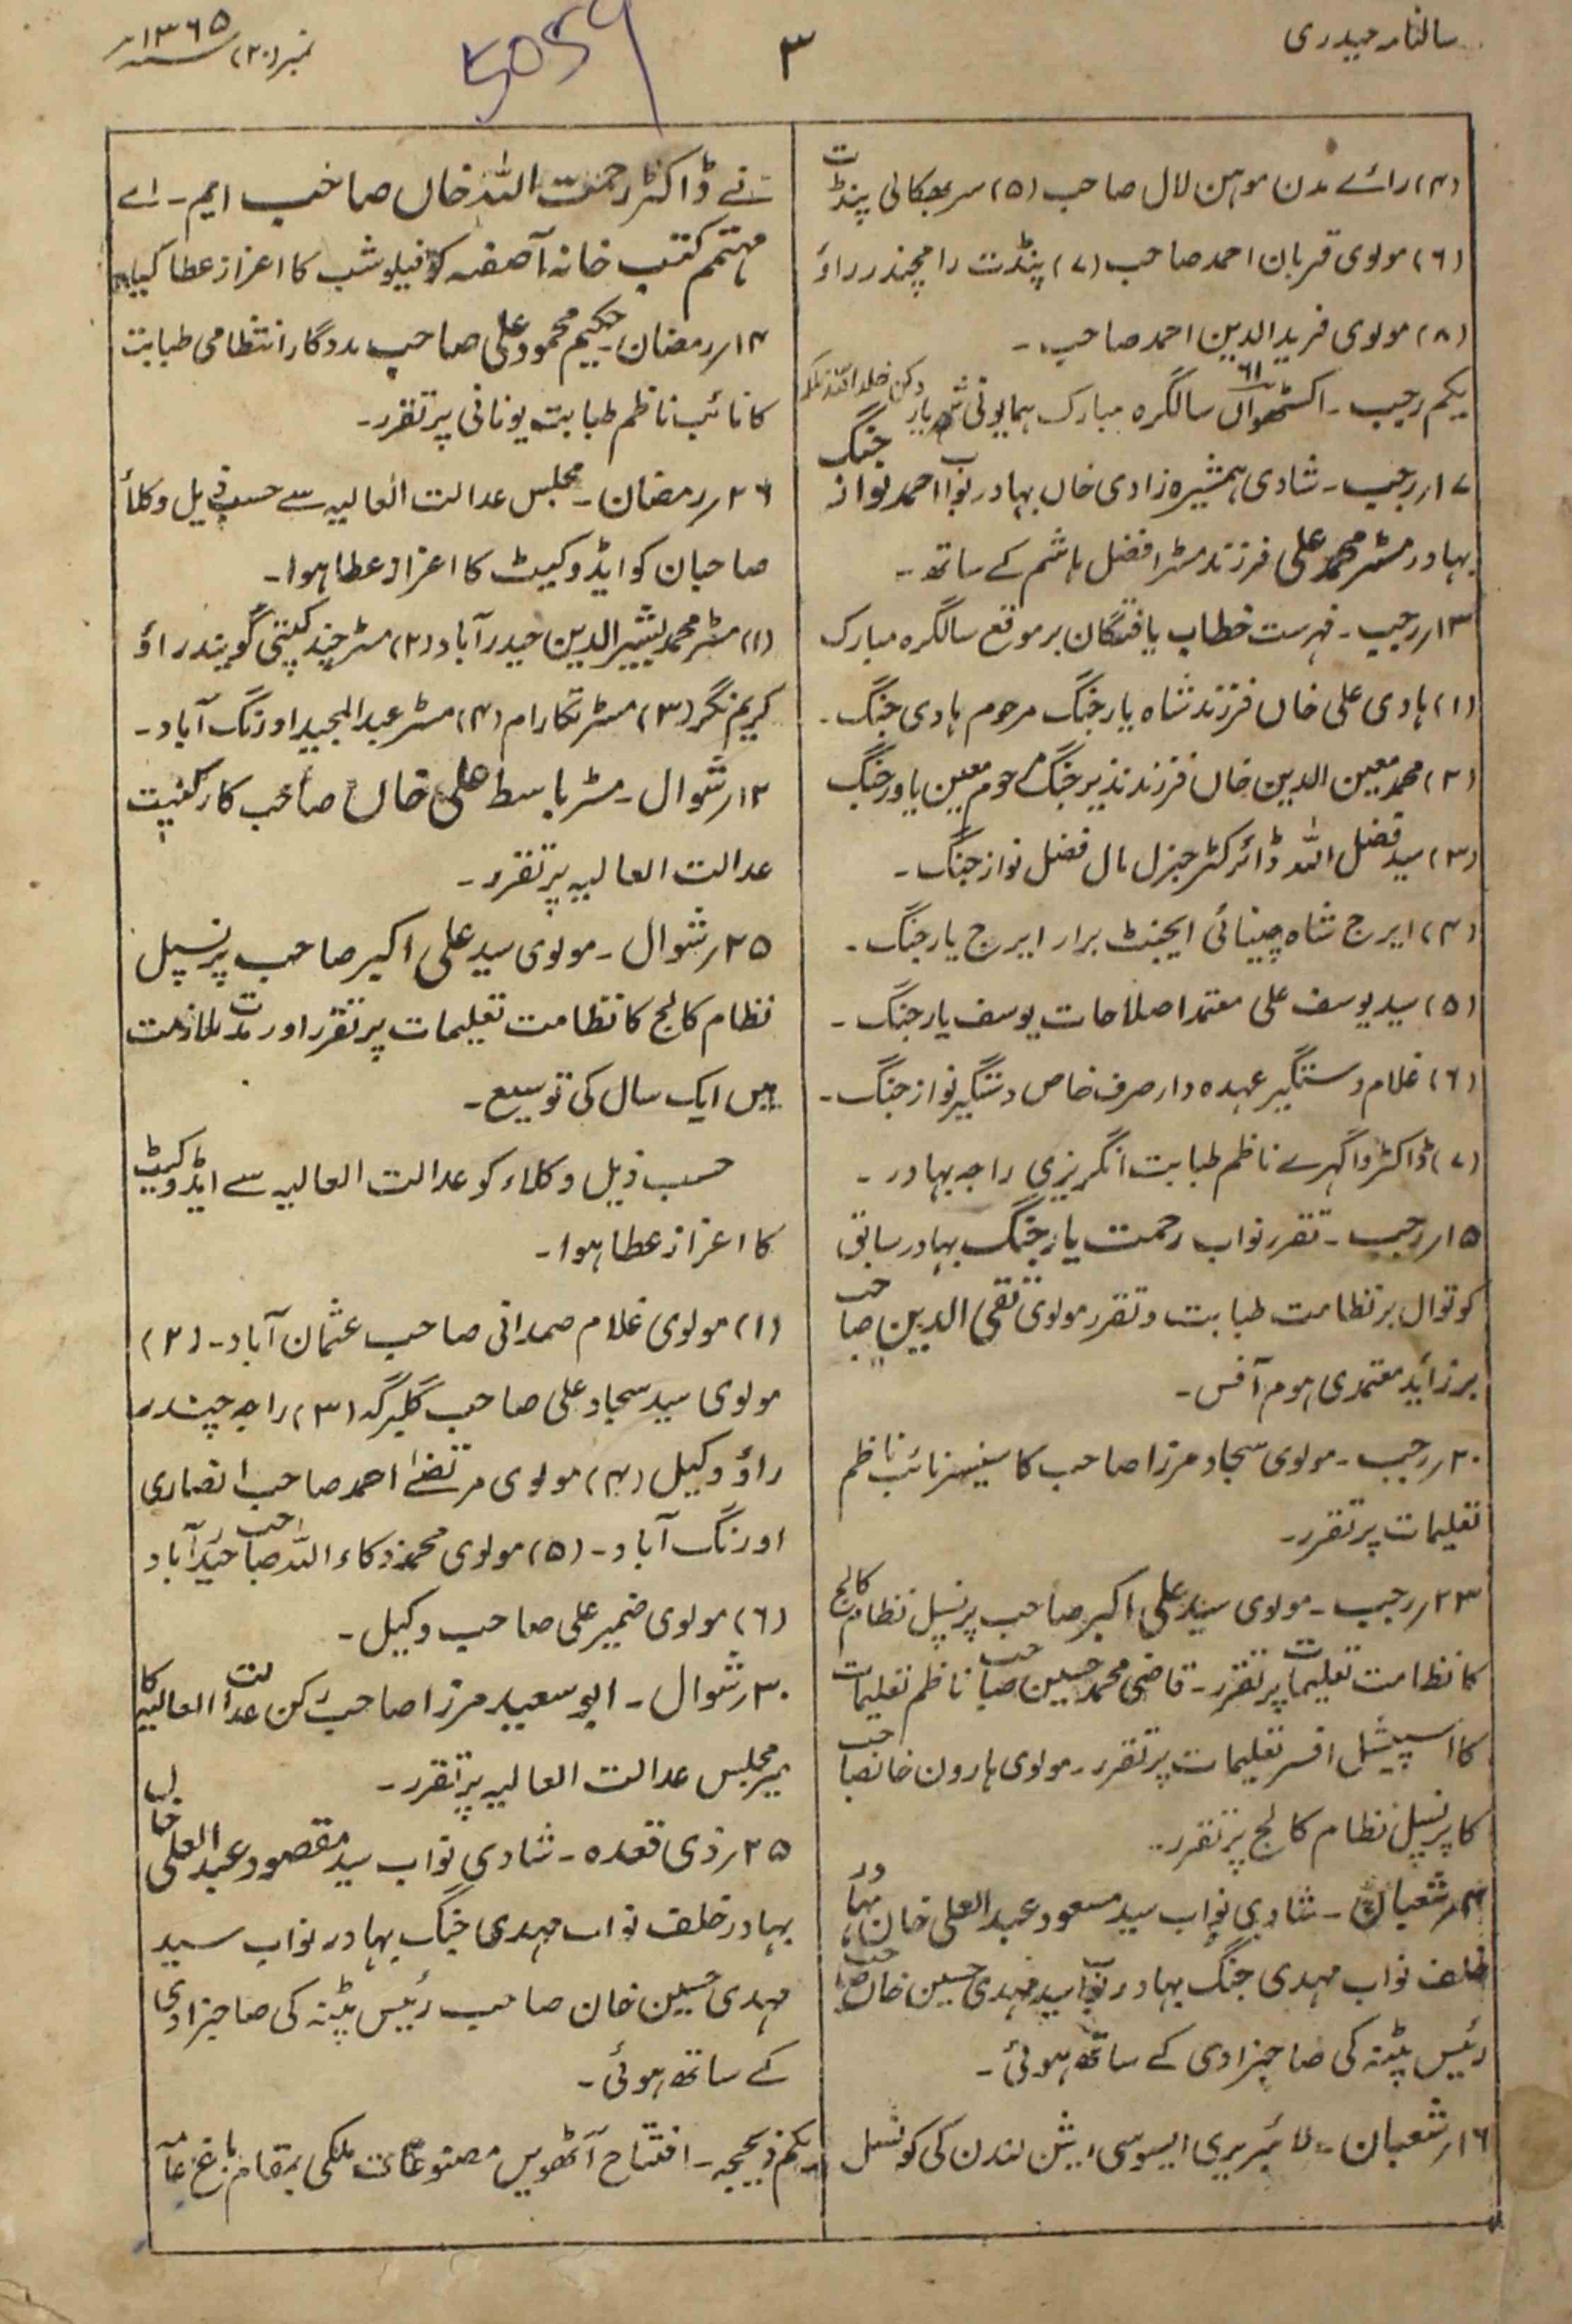 سالنامہ حیدری
۳
5059
نمبر (۲۰) سنہ ۱۳۶۵
(۴) رائے مدن موہن لال صاحب (۵) سربھکالی پنڈت
(۶) مولوی قربان احمد صاحب (۷) پنڈت رامچندر راؤ
(۸) مولوی فرید الدین احمد صاحب ۔
یکم رجب ۔ اکسٹھواں ۶۱ سالگرہ مبارک ہمایونی شہریار دکن خلد اللہ ملکہ
۱۷؍ رجب ۔ شادی ہمشیرہ زادی خاں بہادر نواب احمد نواز جنگ
بہادر مسٹر محمد علی فرزند مسٹر افضل ہاشم کے ساتھ ۔
۱۳؍ رجب ۔ فہرست خطاب یافتگان بر موقع سالگرہ مبارک
(۱) ہادی علی خاں فرزند شاہ یار جنگ مرحوم ہادی جنگ ۔
(۲) محمد معین الدین خاں فرزند نذیر جنگ مرحوم معین یاور جنگ
(۳) سید فضل اللہ ڈائرکٹر جنرل مال فضل نواز جنگ ۔
(۴) ایرج شاہ چینائی ایجنٹ برار ایرج یار جنگ ۔
(۵) سید یوسف علی معتمد اصلاحات یوسف یار جنگ ۔
(۶) غلام دستگیر عہدہ دار صرف خاص دستگیر نواز جنگ ۔
(۷) ڈاکٹر واگہرے ناظم طبابت انگریزی راجہ بہادر ۔
۱۵؍ رجب ۔ تقرر نواب رحمت یار جنگ بہادر سابق
کوتوال بر نظامت طبابت و تقرر مولوی تقی الدین صاحب
بر زائد معتمدی ہوم آفس ۔
۲۰؍ رجب ۔ مولوی سجاد مرزا صاحب کا سینیر نائب ناظم
تعلیمات پر تقرر ۔
۲۳؍ رجب ۔ مولوی سید علی اکبر صاحب پرنسپل نظام کالج
کا نظامت تعلیمات پر تقرر ۔ قاضی محمد حسین صاحب ناظم تعلیمات
کا اسپیشل افسر تعلیمات پر تقرر ۔ مولوی ہارون خانصاحب
کا پرنسپل نظام کالج پر تقرر ۔
شعبان ۔ شادی نواب سید مسعود عبد العلی خان بہادر
خلف نواب مہدی جنگ بہادر نواب سید مہدی حسین خاں صاحب
رئیس پٹنہ کی صاحبزادی کے ساتھ ہوئی ۔
۱۶؍ شعبان ۔ لائبریری ایسوسی ایشن لندن کی کونسل
نے ڈاکٹر رحمت اللہ خاں صاحب ایم ۔ اے
مہتمم کتب خانہ آصفیہ کو فیلوشپ کا اعزاز عطا کیا۔
۱۴؍ رمضان ۔ حکیم محمود علی صاحب مددگار انتظامی طبابت
کا نائب ناظم طبابت یونانی پر تقرر ۔
۲۶؍ رمضان ۔ مجلس عدالت العالیہ سے حسب ذیل وکلأ
صاحبان کو ایڈوکیٹ کا اعزاز عطا ہوا ۔
(۱) مسٹر محمد بشیر الدین حیدرآباد (۲) مسٹر چند کپتی گویندر راؤ
کریم نگر (۳) مسٹر تکارام (۴) مسٹر عبد المجید اورنگ آباد ۔
۱۲؍ شوال ۔ مسٹر باسط علی خاں صاحب کا رکنیت
عدالت العالیہ پر تقرر ۔
۲۵؍ شوال ۔ مولوی سید علی اکبر صاحب پرنسپل
نظام کالج کا نظامت تعلیمات پر تقرر اور مدت ملازمت
میں ایک سال کی توسیع ۔
حسب ذیل وکلاء کو عدالت العالیہ سے ایڈوکیٹ
کا اعزاز عطا ہوا ۔
(۱) مولوی غلام صمدانی صاحب عثمان آباد ۔ (۲)
مولوی سید سجاد علی صاحب گلبرگہ (۳) راجہ چندر
راؤ وکیل (۴) مولوی مرتضےٰ احمد صاحب انصاری
اورنگ آباد ۔ (۵) مولوی محمد ذکاء اللہ صاحب حیدرآباد
(۶) مولوی ضمیر علی صاحب وکیل ۔
۳۰؍ شوال ۔ ابو سعید مرزا صاحب رکن عدالت العالیہ کا
میر مجلس عدالت العالیہ پر تقرر ۔
۲۵؍ ذی قعدہ ۔ شادی نواب سید مقصود عبد العلی خاں
بہادر خلف نواب مہدی جنگ بہادر نواب سید
مہدی حسین خان صاحب رئیس پٹنہ کی صاحبزادی
کے ساتھ ہوئی ۔
یکم ذیحجہ ۔ افتتاح آٹھویں مصنوعات ملکی بمقام باغ عامہ